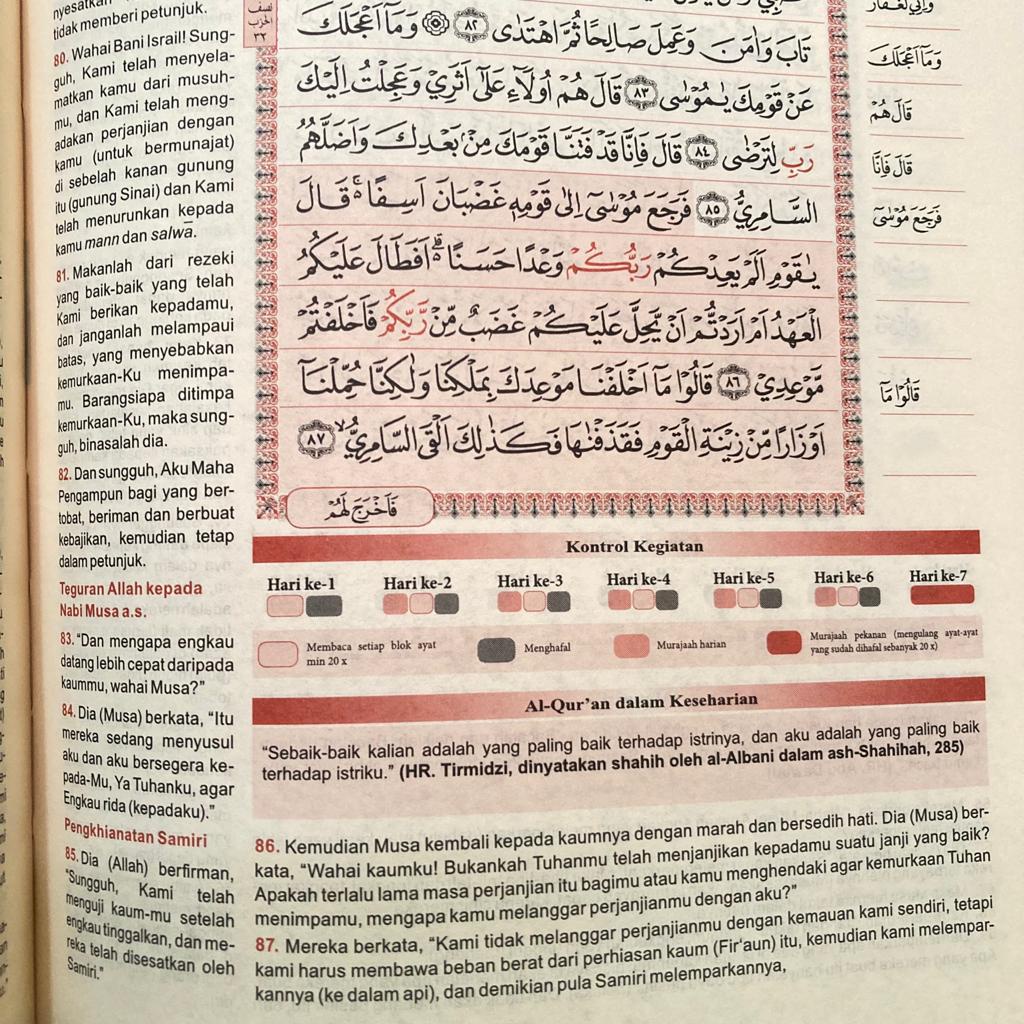 نصف
الحزب
٣٢
تَابَ وَاٰمَنَ وَعَمِلَ صَالِحًا ثُمَّ اهْتَدٰى ۞ ٨٢ وَمَآ اَعْجَلَكَ
عَنْ قَوْمِكَ يٰمُوْسٰى ٨٣ قَالَ هُمْ اُولَاۤءِ عَلٰٓى اَثَرِيْ وَعَجِلْتُ اِلَيْكَ
رَبِّ لِتَرْضٰى ٨٤ قَالَ فَاِنَّا قَدْ فَتَنَّا قَوْمَكَ مِنْۢ بَعْدِكَ وَاَضَلَّهُمُ
السَّامِرِيُّ ٨٥ فَرَجَعَ مُوْسٰٓى اِلٰى قَوْمِهٖ غَضْبَانَ اَسِفًا ەۚ قَالَ
يٰقَوْمِ اَلَمْ يَعِدْكُمْ رَبُّكُمْ وَعْدًا حَسَنًا ەۗ اَفَطَالَ عَلَيْكُمُ
الْعَهْدُ اَمْ اَرَدْتُّمْ اَنْ يَّحِلَّ عَلَيْكُمْ غَضَبٌ مِّنْ رَّبِّكُمْ فَاَخْلَفْتُمْ
مَّوْعِدِيْ ٨٦ قَالُوْا مَآ اَخْلَفْنَا مَوْعِدَكَ بِمَلْكِنَا وَلٰكِنَّا حُمِّلْنَآ
اَوْزَارًا مِّنْ زِيْنَةِ الْقَوْمِ فَقَذَفْنٰهَا فَكَذٰلِكَ اَلْقَى السَّامِرِيُّ ۙ ٨٧
فَاَخْرَجَ لَهُمْ
وَاِنِّيْ لَغَفَّارٌ
وَمَآ اَعْجَلَكَ
قَالَ هُمْ
قَالَ فَاِنَّا
فَرَجَعَ مُوْسٰٓى
قَالُوْا مَآ
tidak memberi petunjuk.
80. Wahai Bani Israil! Sung-
guh, Kami telah menyela-
matkan kamu dari musuh-
mu, dan Kami telah meng-
adakan perjanjian dengan
kamu (untuk bermunajat)
di sebelah kanan gunung
itu (gunung Sinai) dan Kami
telah menurunkan kepada
kamu mann dan salwa.
81. Makanlah dari rezeki
yang baik-baik yang telah
Kami berikan kepadamu,
dan janganlah melampaui
batas, yang menyebabkan
kemurkaan-Ku menimpa-
mu. Barangsiapa ditimpa
kemurkaan-Ku, maka sung-
guh, binasalah dia.
82. Dan sungguh, Aku Maha
Pengampun bagi yang ber-
tobat, beriman dan berbuat
kebajikan, kemudian tetap
dalam petunjuk.
Teguran Allah kepada
Nabi Musa a.s.
83. “Dan mengapa engkau
datang lebih cepat daripada
kaummu, wahai Musa?”
84. Dia (Musa) berkata, “Itu
mereka sedang menyusul
aku dan aku bersegera ke-
pada-Mu, Ya Tuhanku, agar
Engkau rida (kepadaku).”
Pengkhianatan Samiri
85. Dia (Allah) berfirman,
“Sungguh, Kami telah
menguji kaum-mu setelah
engkau tinggalkan, dan me-
reka telah disesatkan oleh
Samiri.”
Kontrol Kegiatan
Hari ke-1 Hari ke-2 Hari ke-3 Hari ke-4 Hari ke-5 Hari ke-6 Hari ke-7
Membaca setiap blok ayat
min 20 x
Menghafal
Murajaah harian
Murajaah pekanan (mengulang ayat-ayat
yang sudah dihafal sebanyak 20 x)
Al-Qur’an dalam Keseharian
“Sebaik-baik kalian adalah yang paling baik terhadap istrinya, dan aku adalah yang paling baik
terhadap istriku.” (HR. Tirmidzi, dinyatakan shahih oleh al-Albani dalam ash-Shahihah, 285)
86. Kemudian Musa kembali kepada kaumnya dengan marah dan bersedih hati. Dia (Musa) ber-
kata, “Wahai kaumku! Bukankah Tuhanmu telah menjanjikan kepadamu suatu janji yang baik?
Apakah terlalu lama masa perjanjian itu bagimu atau kamu menghendaki agar kemurkaan Tuhan
menimpamu, mengapa kamu melanggar perjanjianmu dengan aku?”
87. Mereka berkata, “Kami tidak melanggar perjanjianmu dengan kemauan kami sendiri, tetapi
kami harus membawa beban berat dari perhiasan kaum (Fir‘aun) itu, kemudian kami melempar-
kannya (ke dalam api), dan demikian pula Samiri melemparkannya,